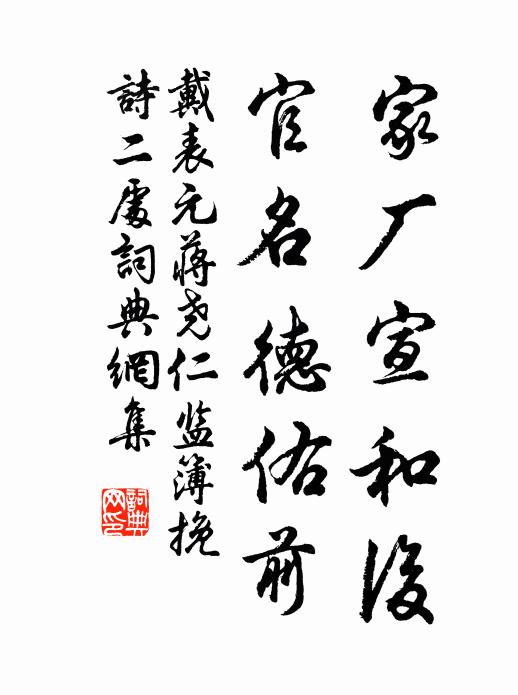 家厂宣和後
官名德佑前
戴表元蒋尧仁监簿挽
詩二處詞典網集
詞典网印